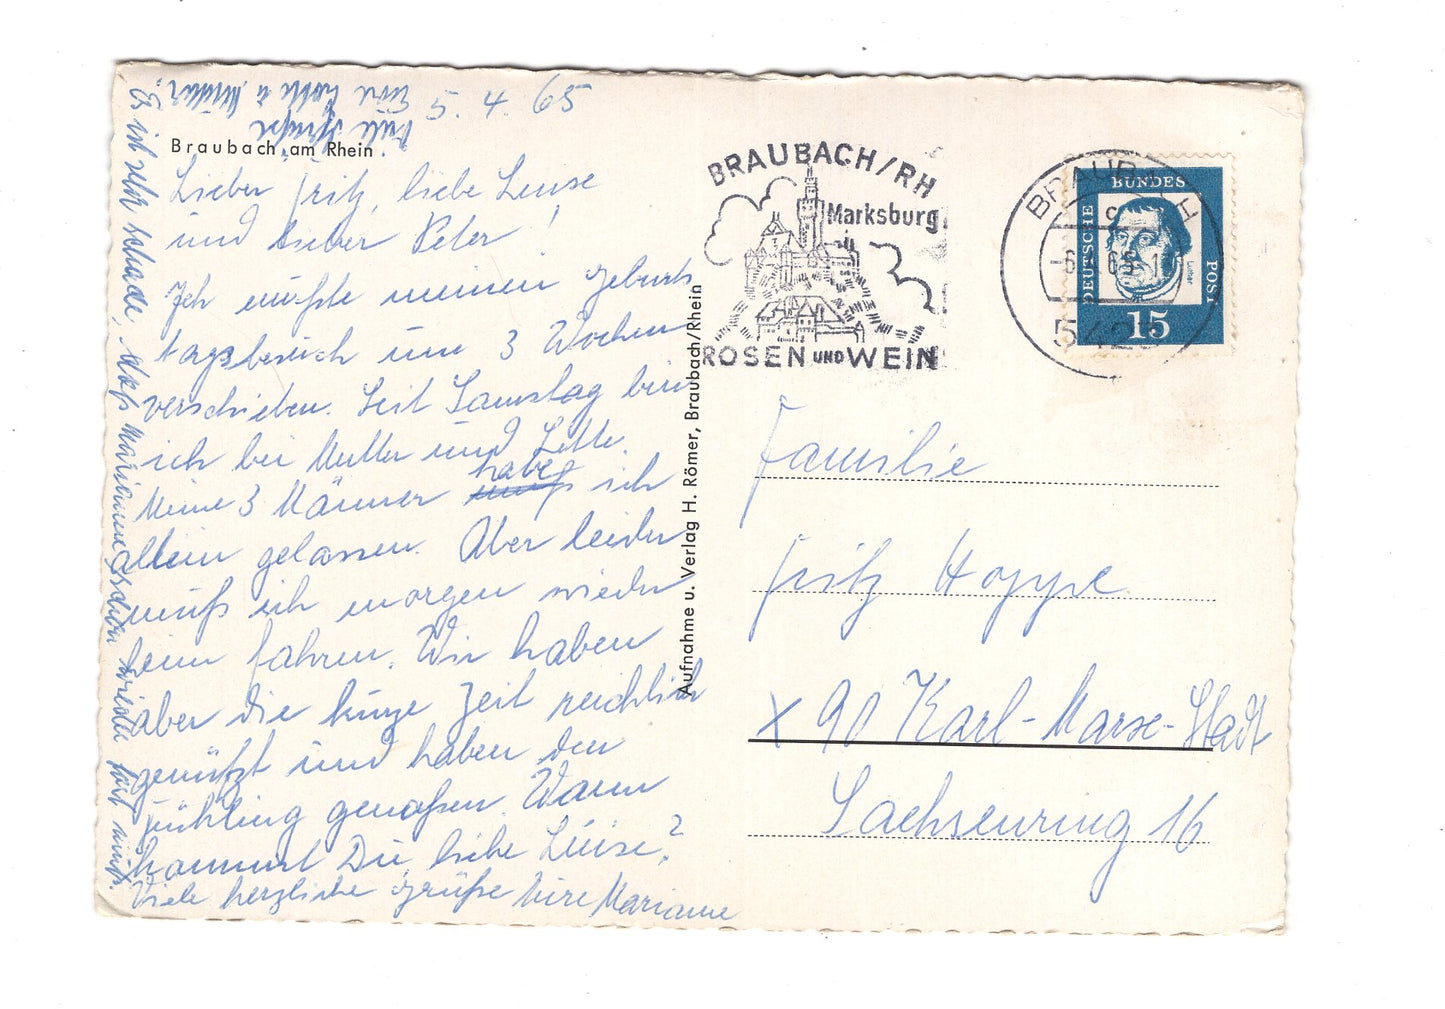 5. 4. 65
Braubach am Rhein
Lieber Fritz, liebe Luise
und lieber Peter!
Ich mußte meinen Geburts
tagsbesuch um 3 Wochen
verschieben. Seit Samstag bin
ich bei Mutter und Lotte.
Meine 3 Männer habe ich
allein gelassen. Aber leider
muß ich morgen wieder
heim fahren. Wir haben
aber die kurze Zeit reichlich
genützt und haben den
Frühling genoßen. Wann
kommst Du, liebe Luise?
Viele herzliche Grüße Eure Marianne
Es ist sehr schade, daß Marianne schon wieder fort muß.
Viele Grüße
Eure Lotte u. Mutter.
Aufnahme u. Verlag H. Römer, Braubach/Rhein
BRAUBACH/RH
Marksburg
ROSEN UND WEIN
BRAUBACH
c
542
DEUTSCHE BUNDESPOST
Luther
15
Familie
Fritz Hoppe
X 90 Karl-Marx-Stadt
Sachsenring 16